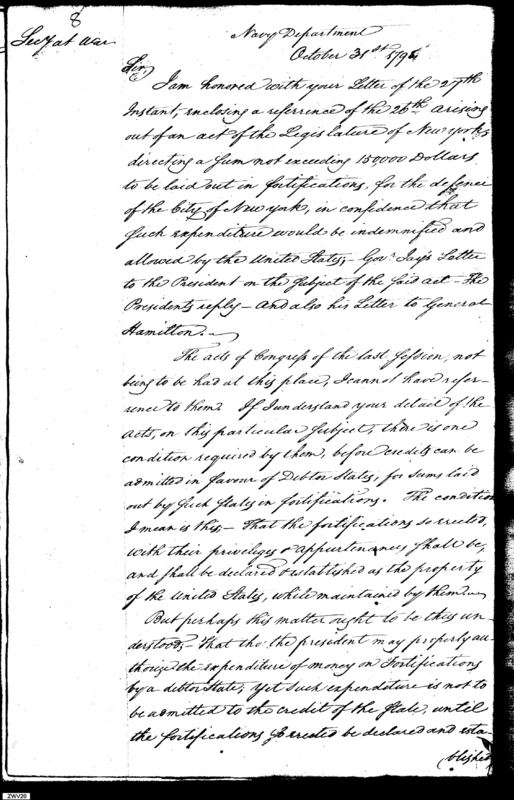 8
Secy at War
Navy Department
October 31st 1798
Sir,
I am honored with your Letter of the 27th
Instant, enclosing a referrence of the 26th arising
out of an act of the Legislature of New York,
directing a sum not exceeding 150,000 Dollars
to be laid out in fortifications, for the defence
of the City of New York, in confidence that
such expenditure would be indemnified and
allowed by the United States;- Govr Jay's Letter
to the President on the subject of the said act - The
Presidents reply - and also his Letter to General
Hamilton.
The acts of Congress of the last Session, not
being to be had at this place, I cannot have refer-
rence to them. If I understand your detail of the
Acts, on this particular subject, there is one
condition required by them, before credits can be
admitted in favour of Debtor States, for sums laid
out by such States in fortifications. The condition
I mean is this;- That the fortifications so errected,
with their priviliges & appurtenances, shall be,
and shall be declared & established as the property
of the United States, while maintained by them.
But perhaps this matter ought to be thus un-
derstood;- That tho' the president may properly au-
thorize the expenditure of money on Fortifications
by a debtor State; yet such expenditure is not to
be admitted to the credit of the State, until
the fortifications so errected be declared and esta-
blished
ZWV20